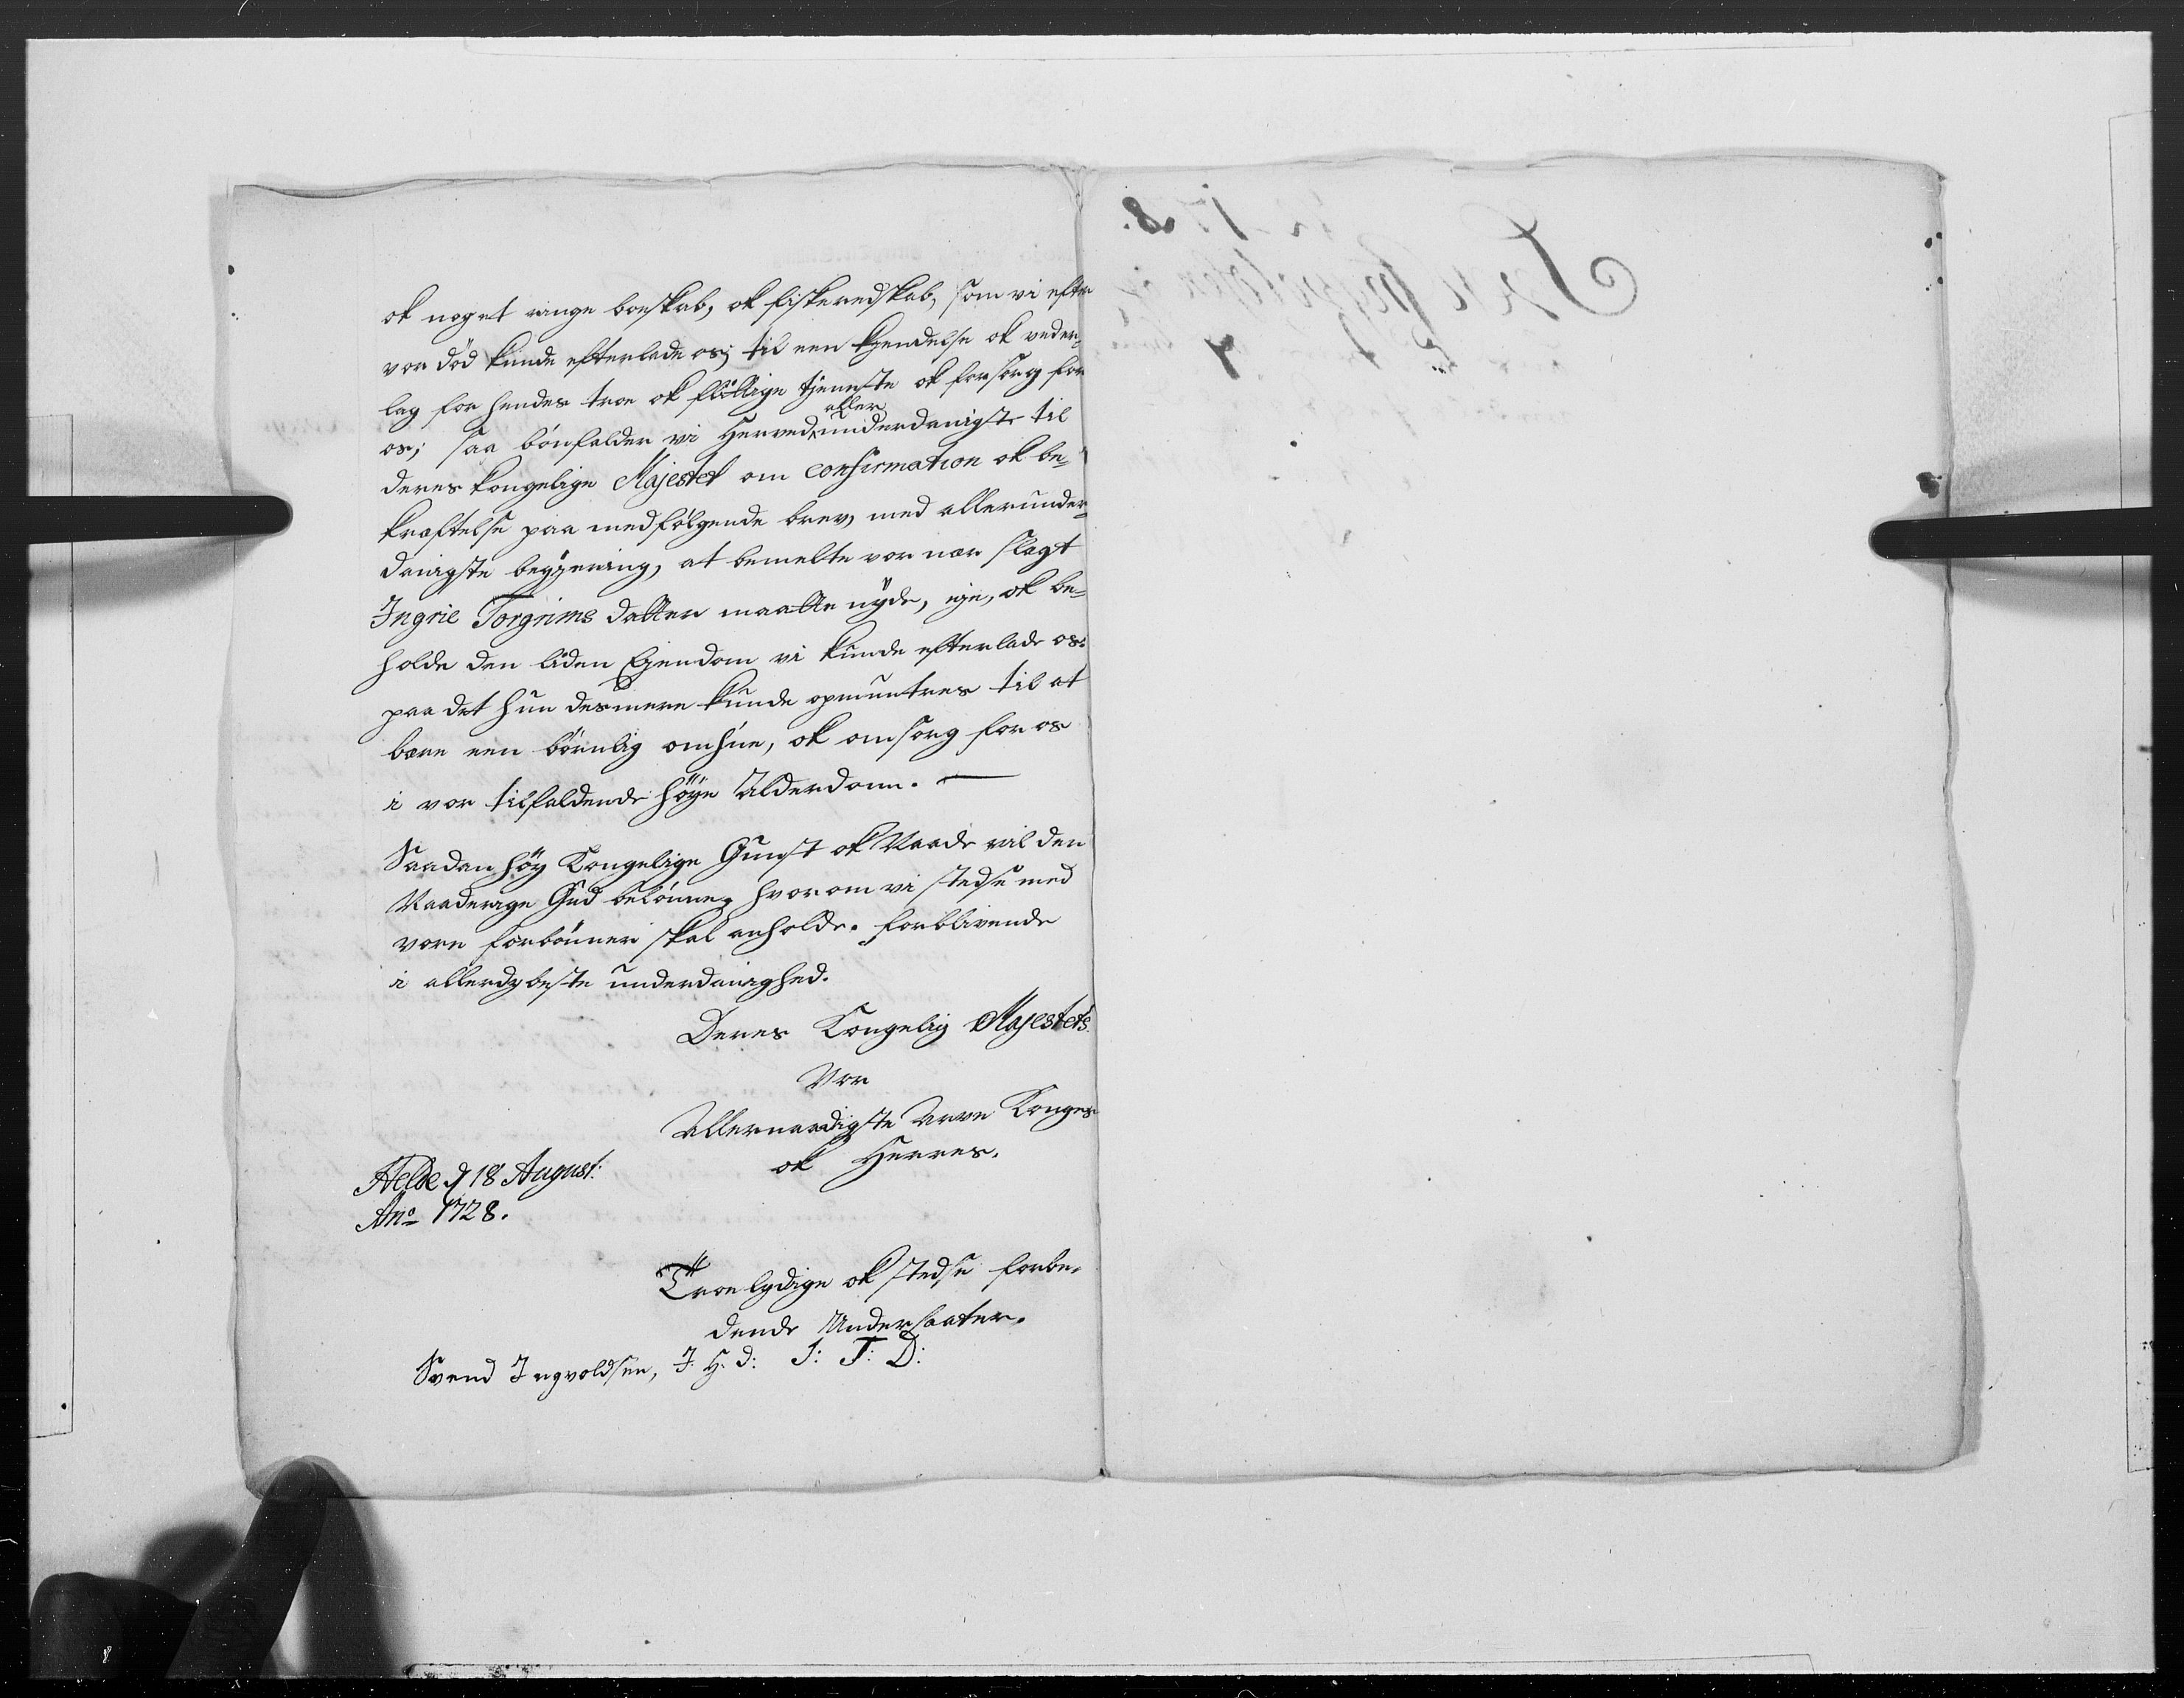 ok noget ringe boeskab, ok fiskeredskab, som vi efter
vor död kunde efterlade os; til een kiendelse ok veder-
lag for hendes troe ok flittige tjeneste ok forsorg for
os; saa bönfalder vi Herved allerunderdanigste til
deres kongelige Majestet om confirmation ok be-
kræftelse paa medfölgende brev, med allerunder-
danigste begjering, at bemelte vor nær slægt
Ingrie Torgrims datter maatte nyde, eje, ok be-
holde den liden Ejendom vi kunde efterlade os:
paa det hun desmere kunde opmuntres til at
bære een börnlig omhue, ok omsorg for os
i vor tilfaldende höye Alderdom. —
Saadan höy Kongelige Gunst ok Naade vil den
Naaderige Gud belönne, hvorom vi stedse med
vore forbönner skal anholde. forblivende
i allerdybeste underdanighed.
Deres Kongelig Majestets
Vor
Allernaadigste Arve Konges
ok Herres.
Helle d 18 August:
Ano 1728.
Troelydige ok stedse forbe-
dende Undersaatter.
Svend Ingvoldsen, I. H. d: I: T: D: